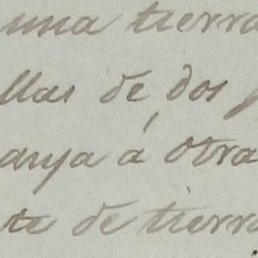 una tierra
llas de dos
anja á otra
te de tierra